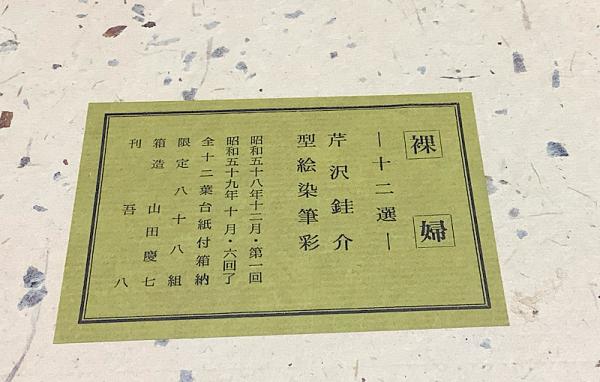 裸婦
―十二選―
芹沢銈介
型絵染筆彩
昭和五十八年十二月・第一回
昭和五十九年十月・六回了
全十二葉台紙付箱納
限定八十八組
箱造 山田慶七
刊 吾八